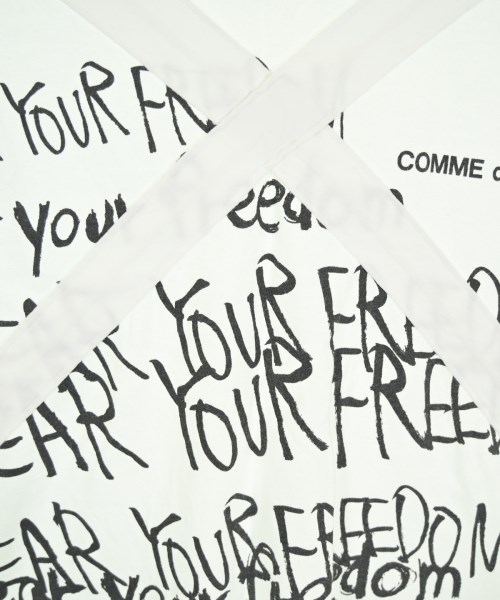 YOUR FR
COMME d
your freedom
YOUR FREED
EAR YOUR FREED
EAR YOUR FREEDOM
your freedom